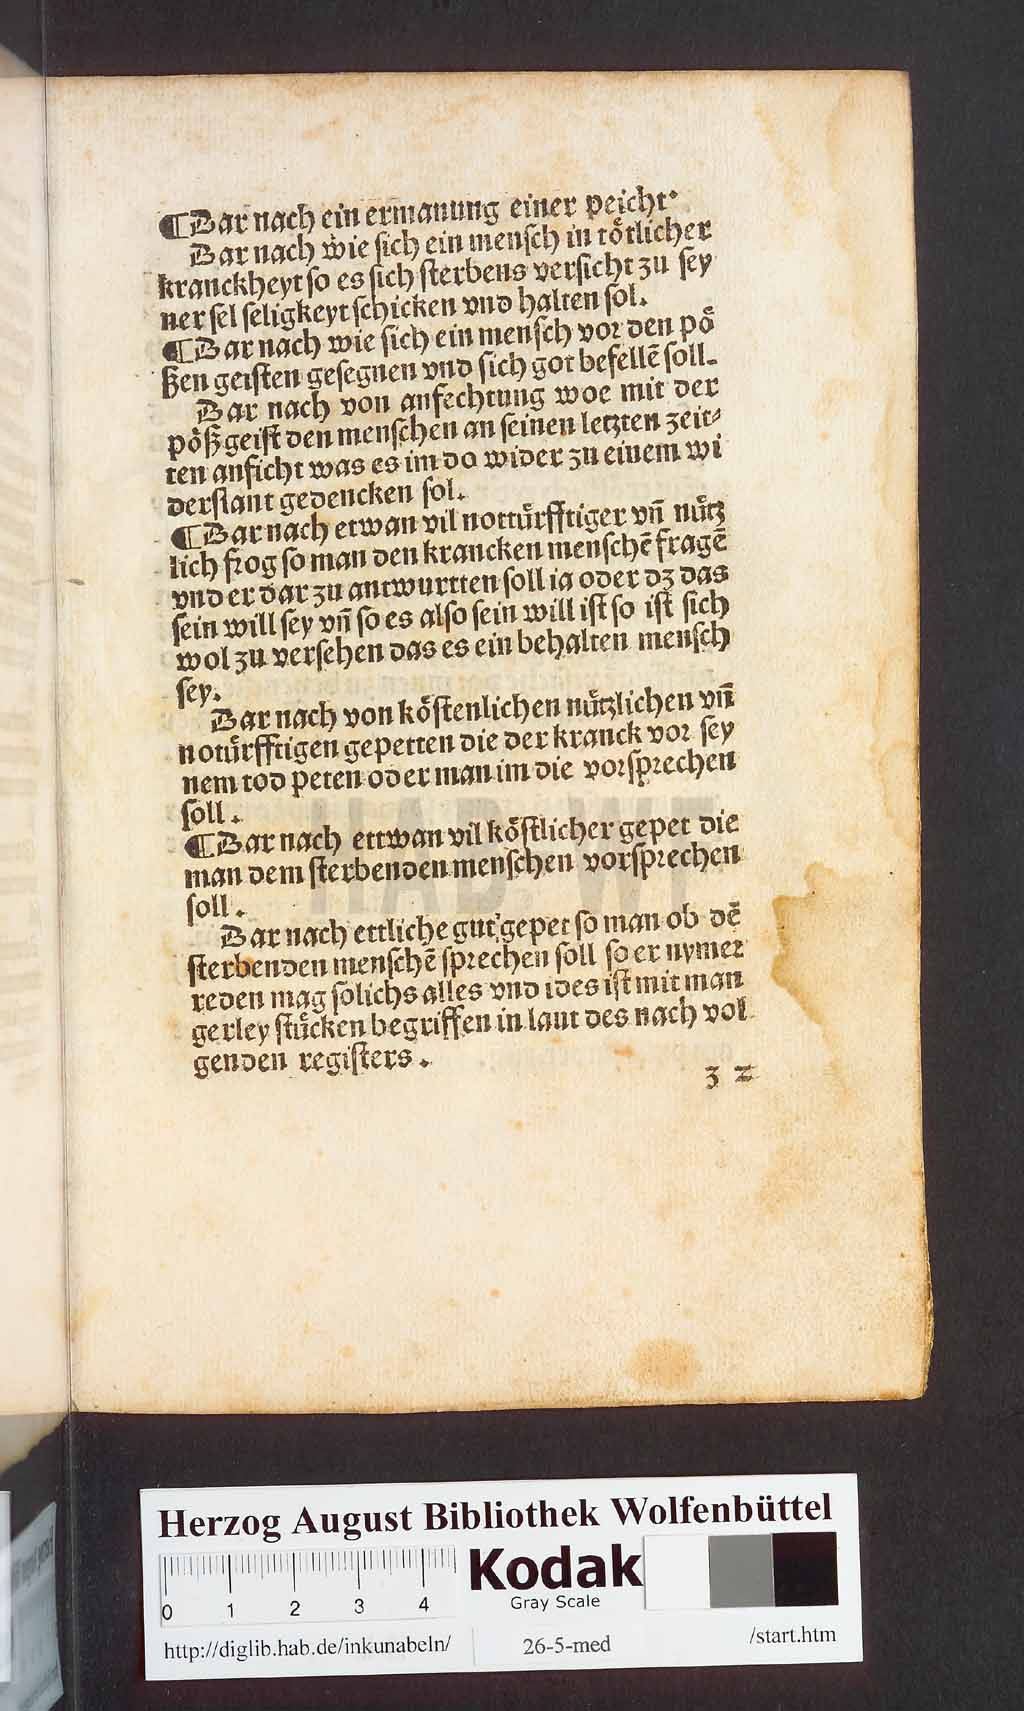 ¶Dar nach ein ermanung einer peicht·
Dar nach wie sich ein mensch in tötlicher
kranckheyt so es sich sterbens versicht zu sey
ner sel seligkeyt schicken vnd halten sol.
¶Dar nach wie sich ein mensch vor den pö
ßen geisten gesegnen vnd sich got befellē soll.
Dar nach von anfechtung woe mit der
pöß geist den menschen an seinen letzten zeit⸗
ten anficht was es im do wider zu einem wi
derstant gedencken sol.
¶Dar nach etwan vil nottürfftiger vn̄ nütz
lich frog so man den krancken menschē fragē
vnd er dar zu antwurtten soll ia oder dz das
sein will sey vn̄ so es also sein will ist so ist sich
wol zu versehen das es ein behalten mensch
sey.
Dar nach von köstenlichen nützlichen vn̄
notürfftigen gepetten die der kranck vor sey
nem tod peten oder man im die vorsprechen
soll.
¶Dar nach ettwan vil köstlicher gepet die
man dem sterbenden menschen vorsprechen
soll.
Dar nach ettliche gut gepet so man ob dē
sterbenden menschē sprechen soll so er nymer
reden mag solichs alles vnd ides ist mit man
gerley stücken begriffen in laut des nach vol
genden registers.
3 2
HAB WF
Herzog August Bibliothek Wolfenbüttel
0 1 2 3 4
Kodak
Gray Scale
http://diglib.hab.de/inkunabeln/ 26-5-med /start.htm